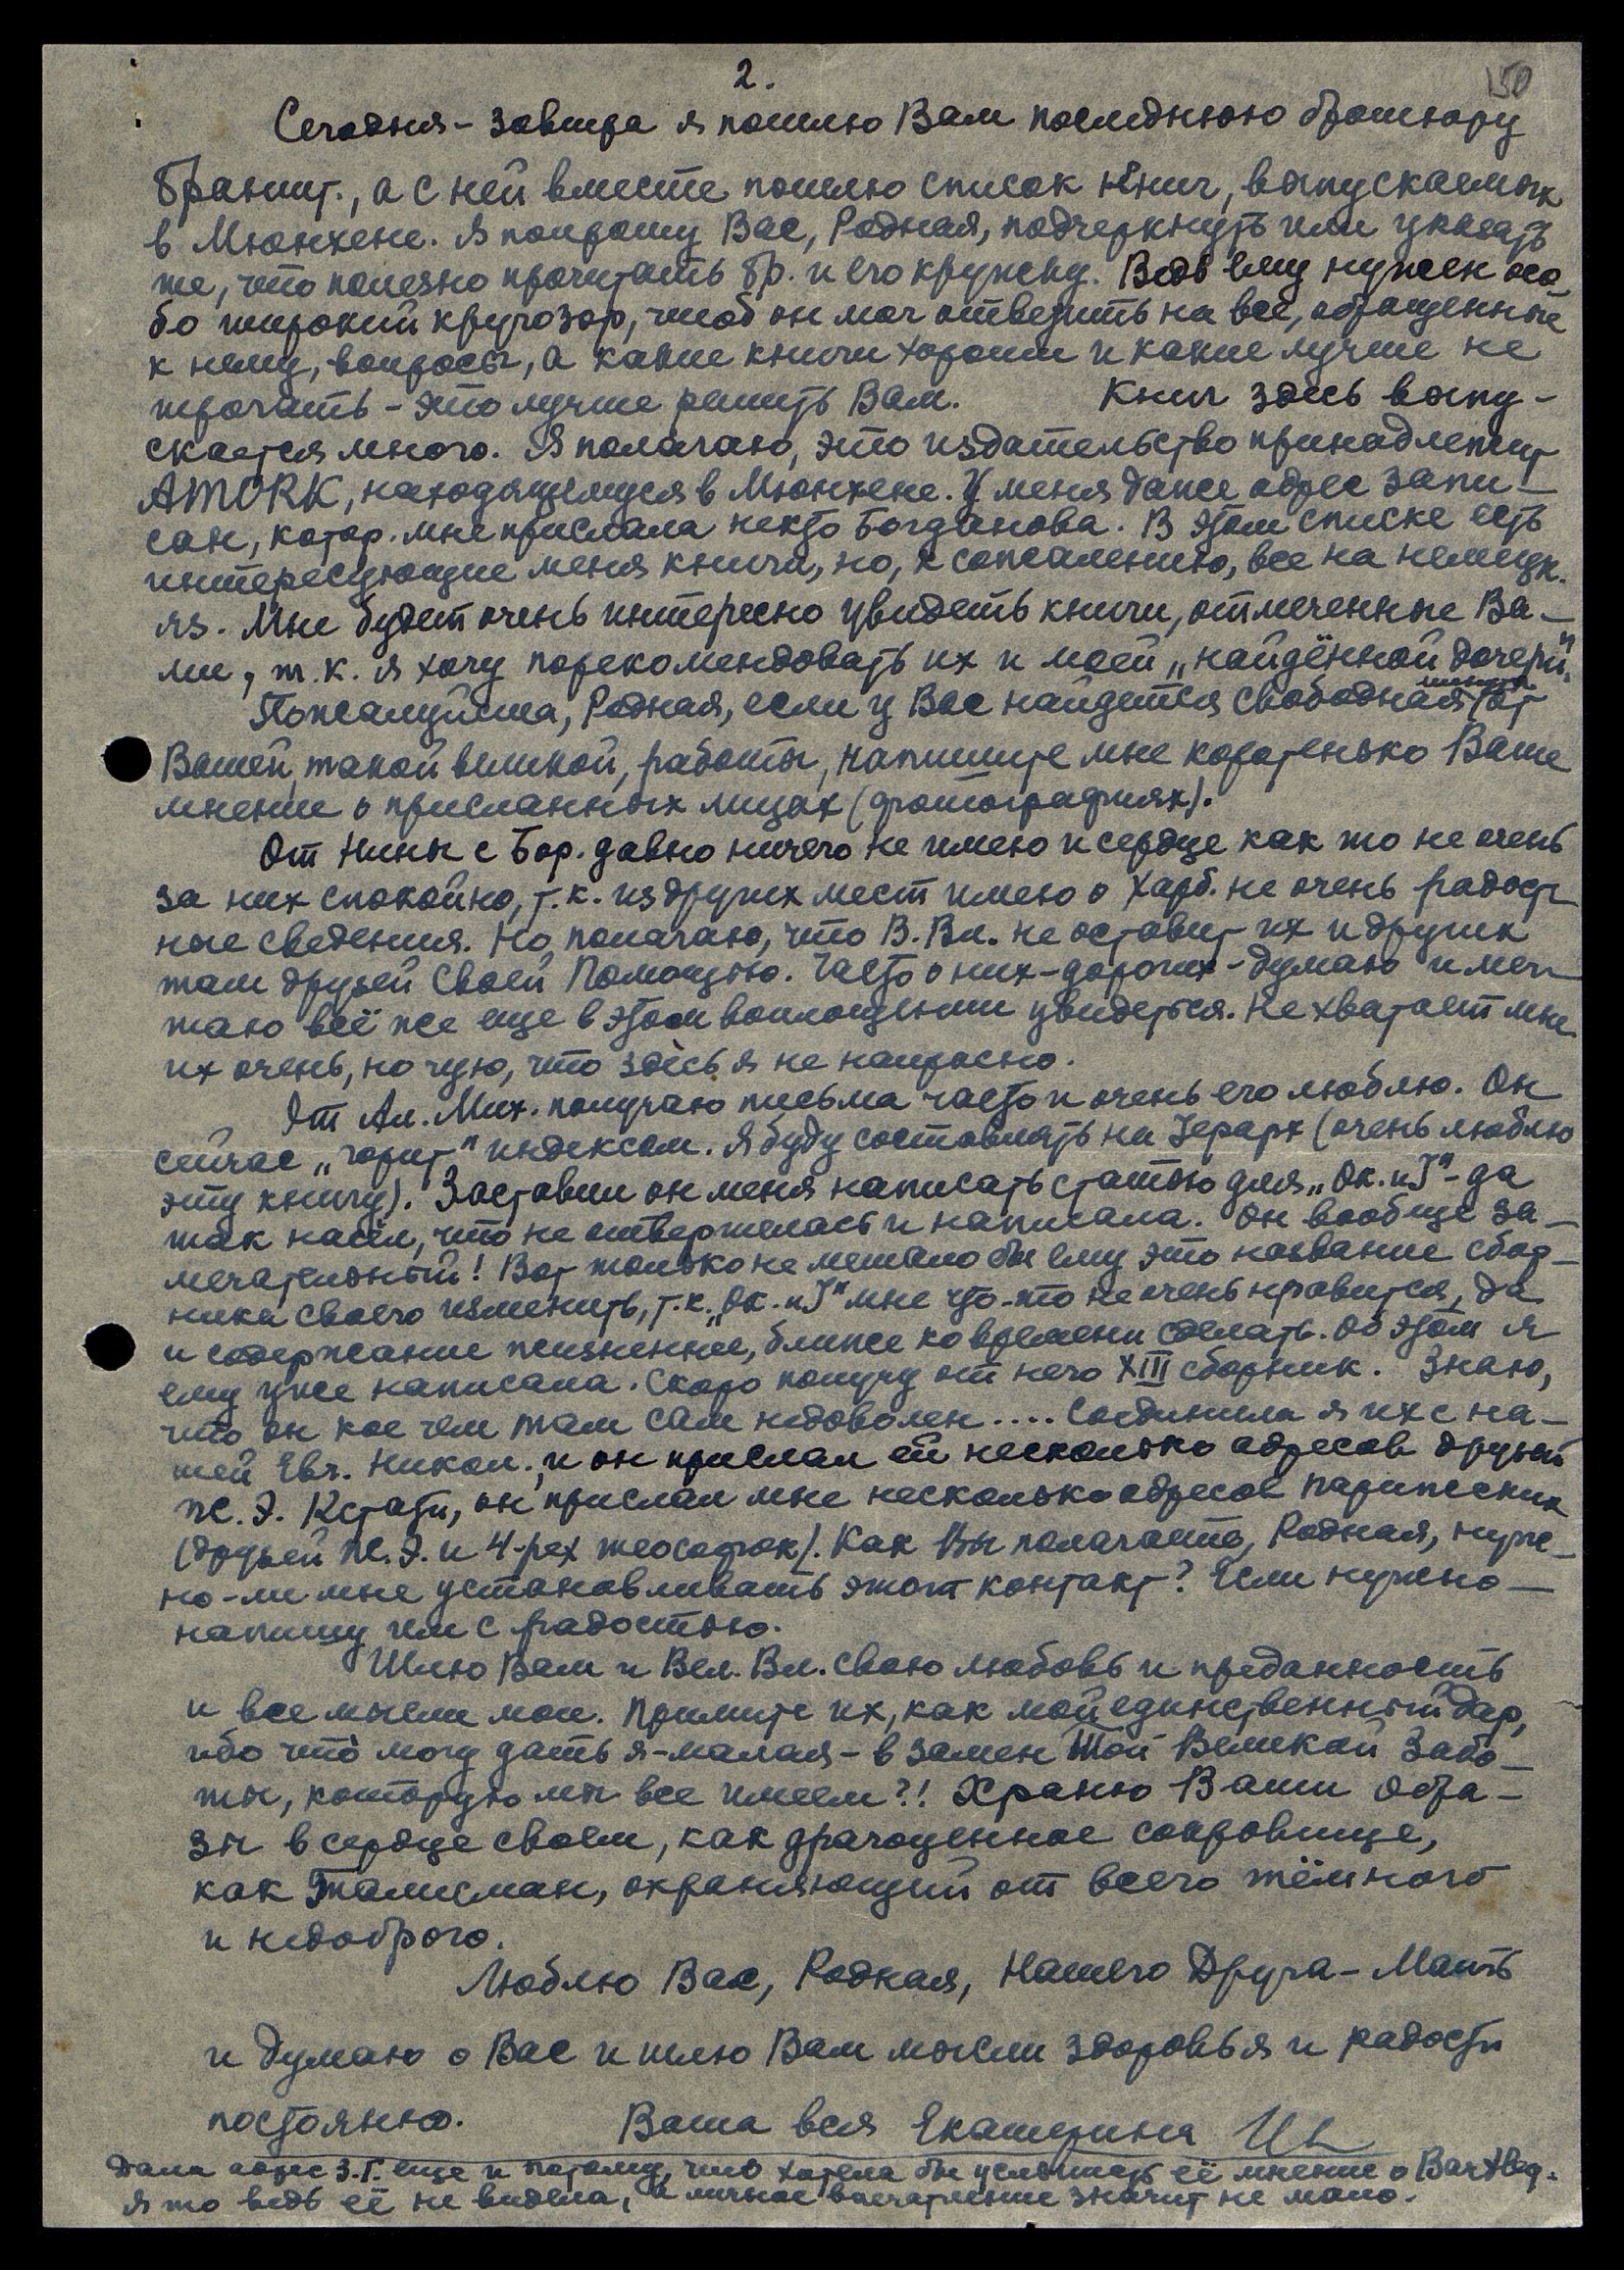 2.
150
Сегодня – завтра я пошлю Вам последнюю брошюру
Браншт., а с ней вместе пошлю список книг, выпускаемых
в Мюнхене. Я попрошу Вас, Родная, подчеркнуть или указать
те, что полезно прочитать Бр. и его кружку. Ведь ему нужен осо
бо широкий кругозор, чтоб он мог ответить на все, обращенные
к нему, вопросы, а какие книги хороши и какие лучше не
трогать – это лучше решить Вам. Книг здесь выпу-
скается много. Я полагаю, это издательство принадлежит
AMORK, находящемуся в Мюнхене. У меня даже адрес запи-
сан, котор. мне прислала некто Богданова. В этом списке есть
интересующие меня книги, но, к сожалению, все на немецк.
яз. Мне будет очень интересно увидеть книги, отмеченные Ва-
ми, т.к. я хочу порекомендовать их и моей „найдённой дочери".
Пожалуйста, Родная, если у Вас найдется свободная минута от
Вашей, такой великой, работы, напишите мне коротенько Ваше
мнение о присланных лицах (фотографиях).
От Нины с Бор. давно ничего не имею и сердце как то не очень
за них спокойно, т.к. из других мест имею о Харб. не очень радост
ные сведения. Но, полагаю, что В. Вл. не оставит их и других
там друзей Своей Помощью. Часто о них – дорогих – думаю и меч-
таю всё же еще в этом воплощении увидеться. Не хватает мне
их очень, но чую, что здесь я не напрасно.
От Ал. Мих. получаю письма часто и очень его люблю. Он
сейчас „горит" индексом. Я буду составлять на Иерарх (очень люблю
эту книгу). Заставил он меня написать статью для „Ок. и J" – да
так насел, что не отвертелась и написала. Он вообще за-
мечательный! Вот только не мешало бы ему это название сбор-
ника своего изменить, т.к. „Ок. и J" мне что-то не очень нравится, да
и содержание жизненнее, ближе ко времени сделать. Об этом я
ему уже написала. Скоро получу от него XIII сборник. Знаю,
что он кое чем там сам недоволен.... Соединила я их с на-
шей Евг. Никол., и он прислал ей несколько адресов друзей
Ж. Э. Кстати, он прислал мне несколько адресов парижских
(друзей Ж. Э. и 4-рех теософок). Как Вы полагаете, Родная, нуж-
но-ли мне устанавливать этот контакт? Если нужно –
напишу им с радостью.
Шлю Вам и Вел. Вл. свою любовь и преданность
и все мысли мои. Примите их, как мой единственный дар,
ибо что могу дать я – малая – в замен Той Великой Забо-
ты, которую мы все имеем?! Храню Ваши Обра-
зы в сердце своем, как драгоценное сокровище,
как Талисман, охраняющий от всего тёмного
и недоброго.
Люблю Вас, Родная, Нашего Друга – Мать
и думаю о Вас и шлю Вам мысли здоровья и радости
постоянно. Ваша вся Екатерина
Дала адрес З.Г. еще и потому, что хотела бы услышать её мнение о
Я то ведь её не видела, а личное впечатление значит не мало.